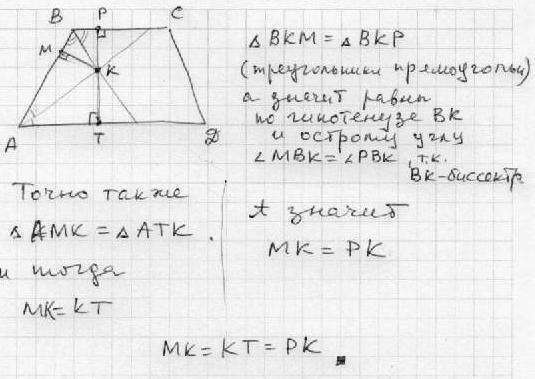 B P C
M
K
A T D
△ BKM = △ BKP
(треугольники прямоугольн)
а значит равны
по гипотенузе BK
и острому углу
∠MBK = ∠PBK, т.к.
BK-биссектр
Точно также
△ AMK = △ ATK .
и тогда
MK = KT
А значит
MK = PK
MK = KT = PK .